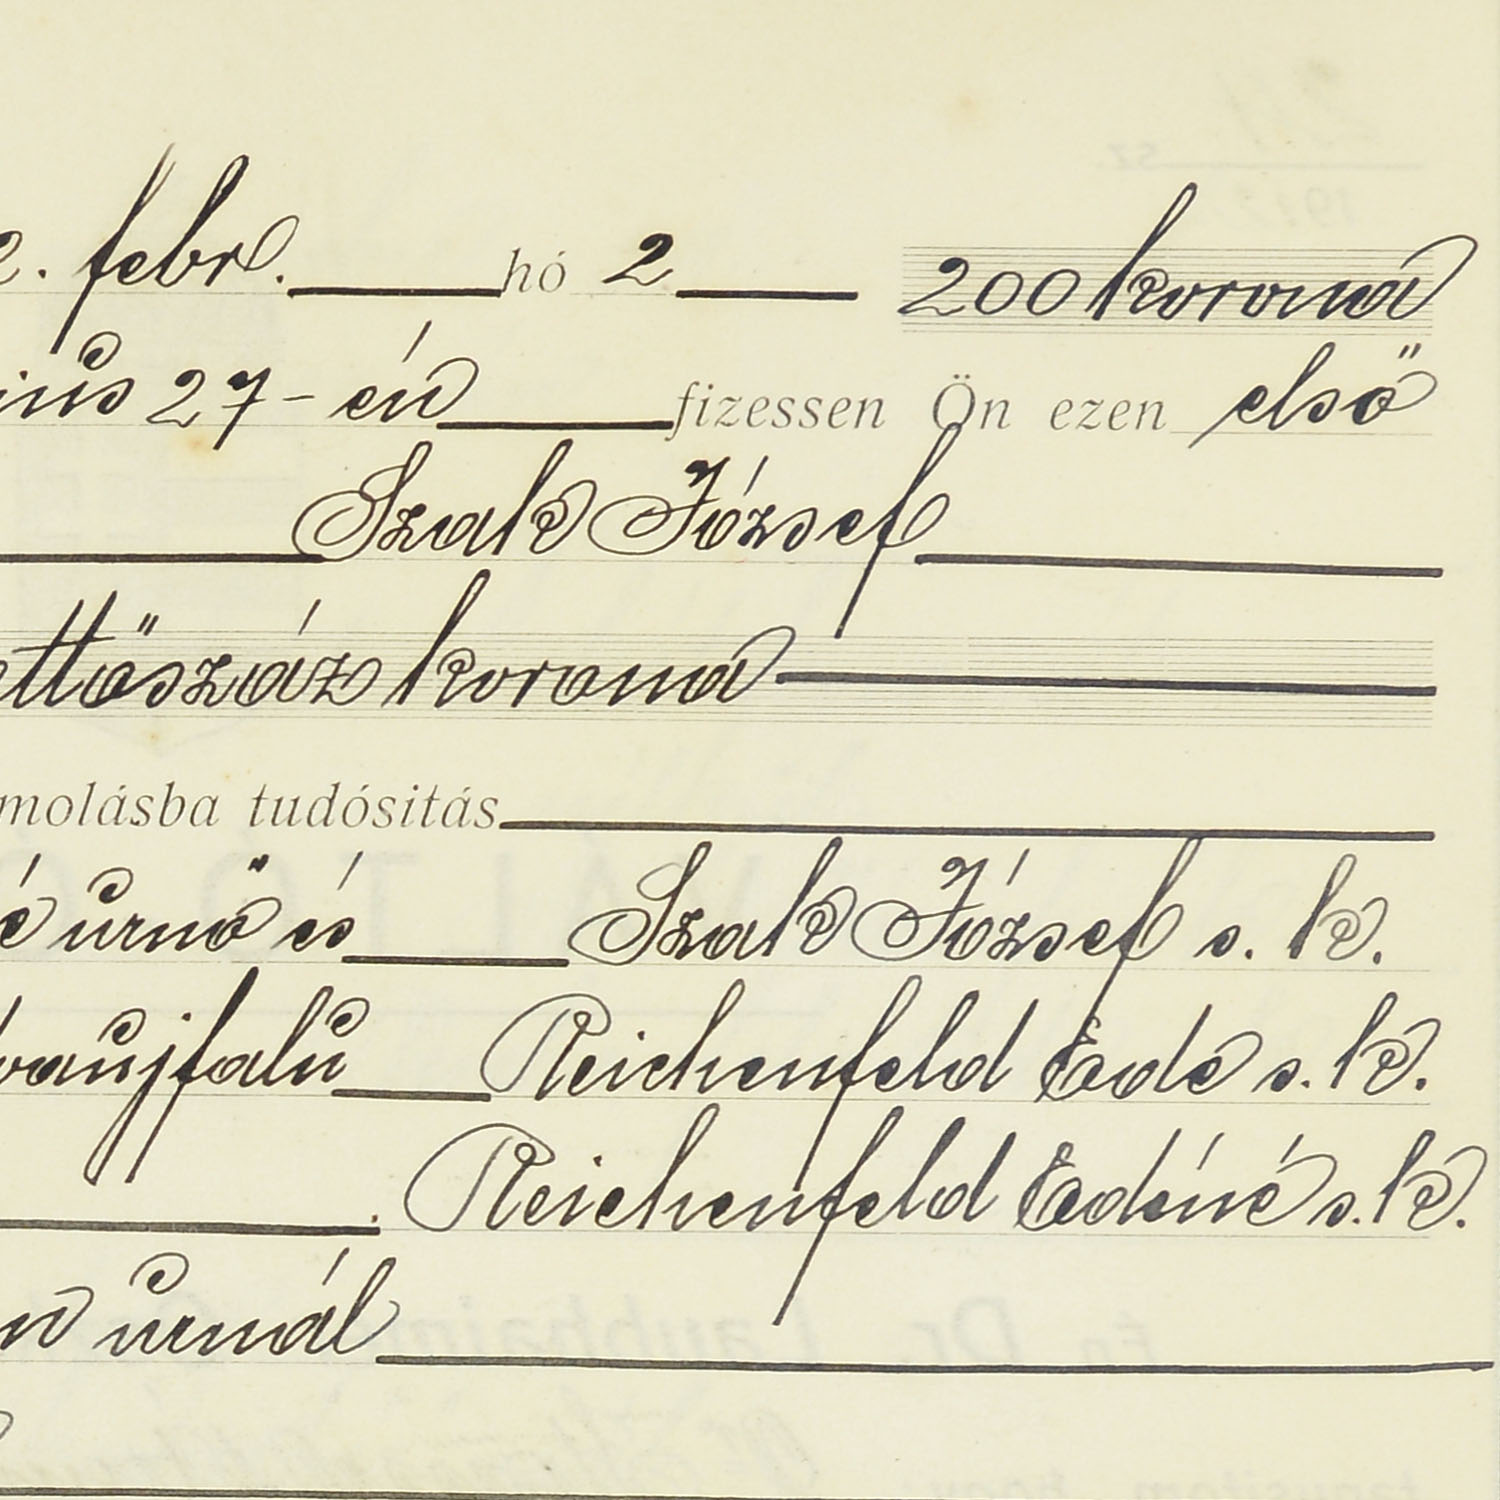 2. febr. hó 2 200 korona
ius 27-én fizessen Ön ezen első
Szalk József
ettőszáz korona
molásba tudósitás
é úrnő és Szalk József s. k.
vaújfalú Reichenfeld Ede s. k.
Reichenfeld Edéné s. k.
n úrnál